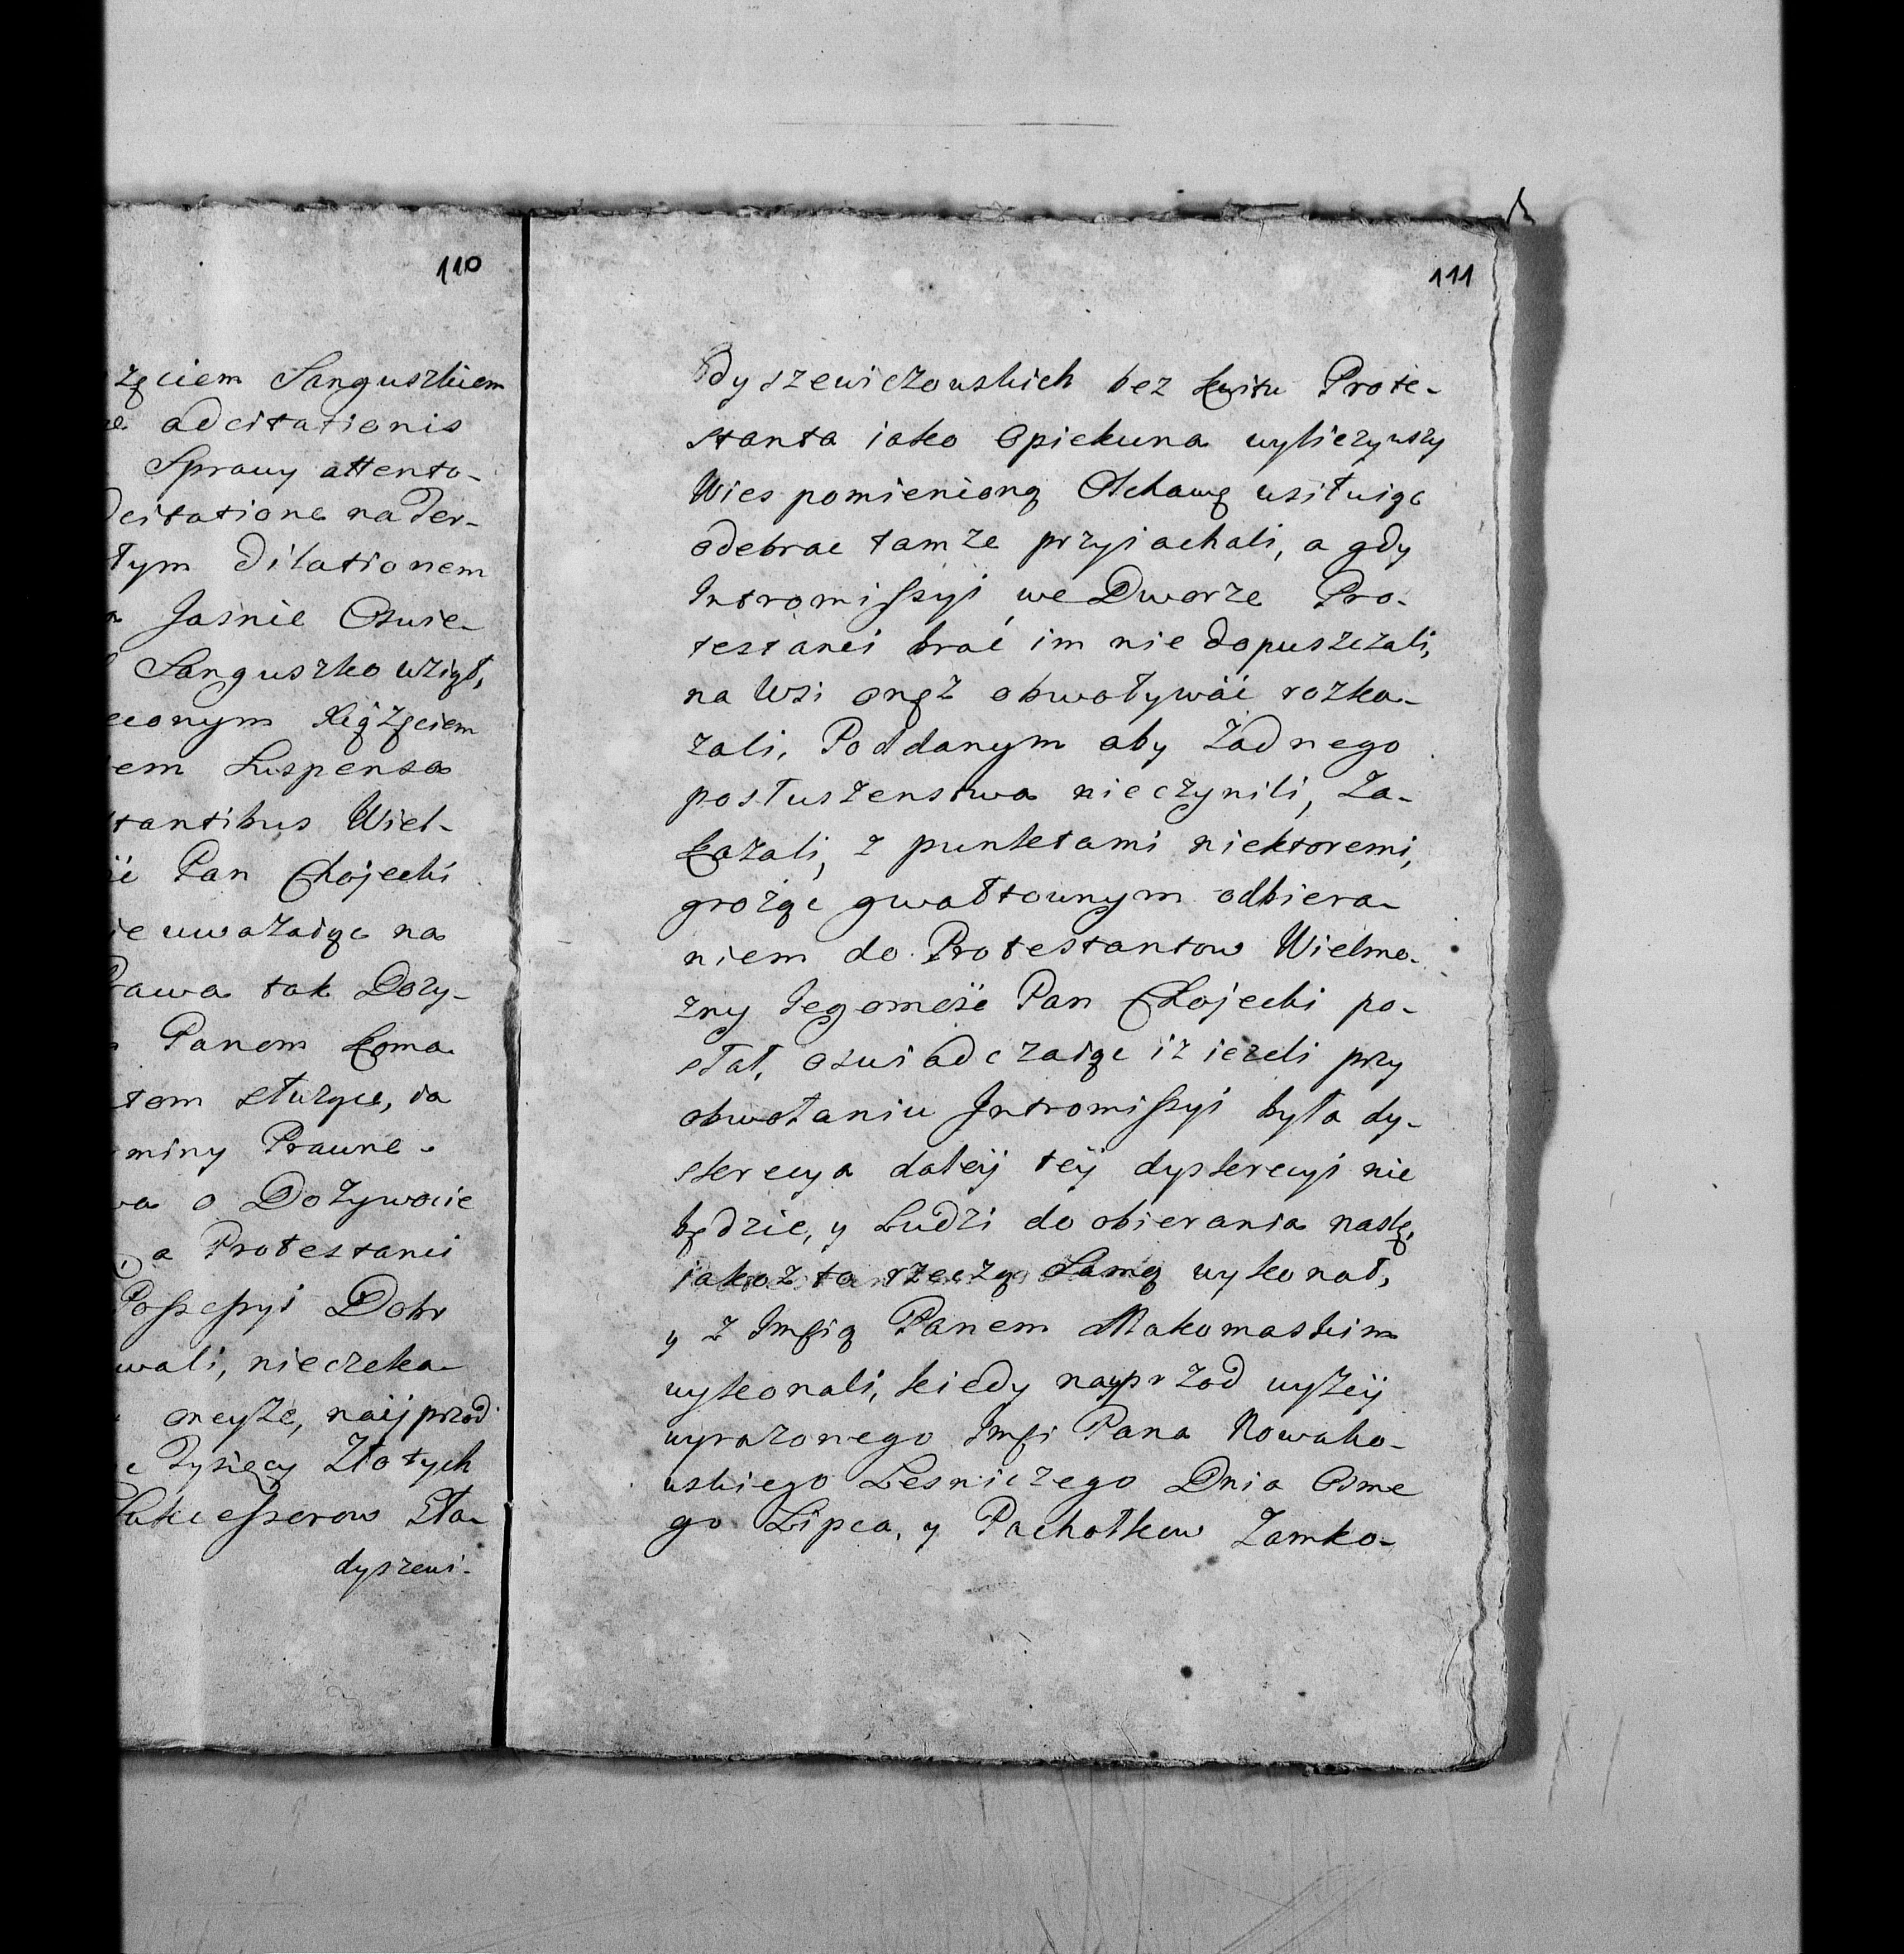 110
zęciem Sanguszkiem
adcitationis
Sprawy attento-
citatione na Ter-
tym dilationem
Jasnie Oswie-
Sanguszko wziął,
cionym Xiążęciem
em Suspensa
tantibus Wiel-
Pan Chojecki
ie uwazaiąc na
rawa tak Dozy-
Panem Koma-
tom słuzyce, da
miny Prawne.
wa o Dozywocie
a Protestanci
Possessyi Dobr
wali, nieczeka-
oneyże, naijprzod
Tysięcy Złotych
Sukcessorow Sta-
dyszewi-
111
dyszewiczowskich bez kwitu Prote-
stanta iako Opiekuna wyliczywszy
Wies pomienioną Olchawę usiłuiąc
odebrac tamze przyiachali, a gdy
Intromissyi we Dworze Pro-
testanci brać im nie dopuszczali,
na Wsi onęż obwoływać rozka-
zali, Poddanym aby Zadnego
posłuszenstwa nieczynili, Za-
kazali, z punktami niektoremi,
grożąc gwałtownym odbiera-
niem do Protestantow Wielmo-
zny Jegomość Pan Chojecki po-
słał, oswiadczaiąc iz iezeli przy
obwołaniu Intromissyi była dy-
skrecya daleij teij dyskrecyi nie
będzie, y Ludzi do obierania naslę,
iakoż ta rzeczą Samą wykonał,
y z Imscią Panem Makomaskim
wykonali, kiedy nayprzod wyżeij
wyrazonego Imsci Pana Nowako-
wskiego Lesniczego Dnia Osme
go Lipca, y Pachołkow Zamko-